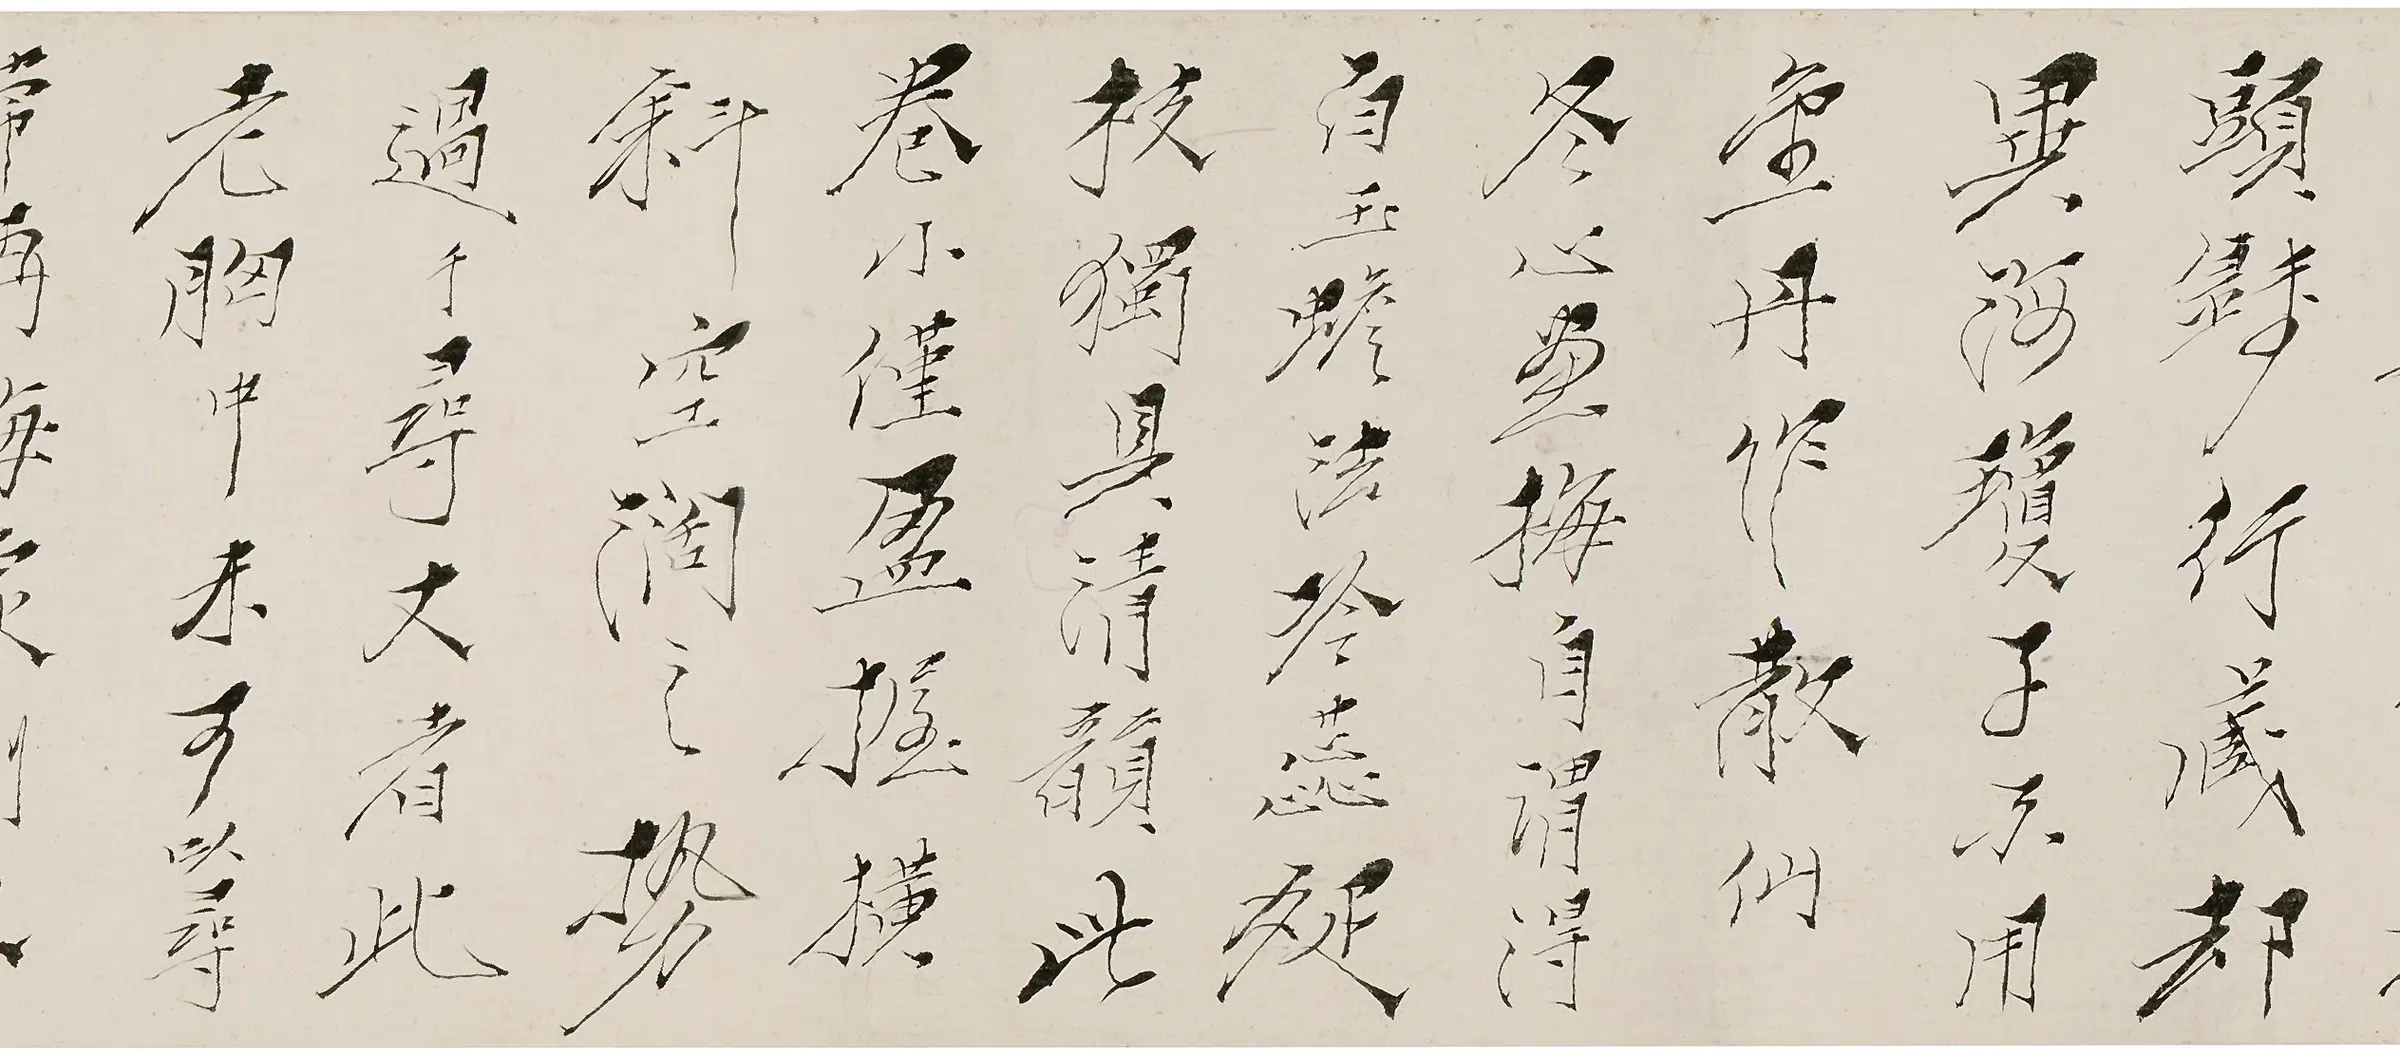 頭錢行藏却
異海瓊子不用
金丹作散仙
冬心畫梅自謂得
白玉蟾法冷蕊疎
枝獨具清韻此
卷小僅盈握橫
斜空闊之勢
過于尋丈者此
老胸中未可以尋
常